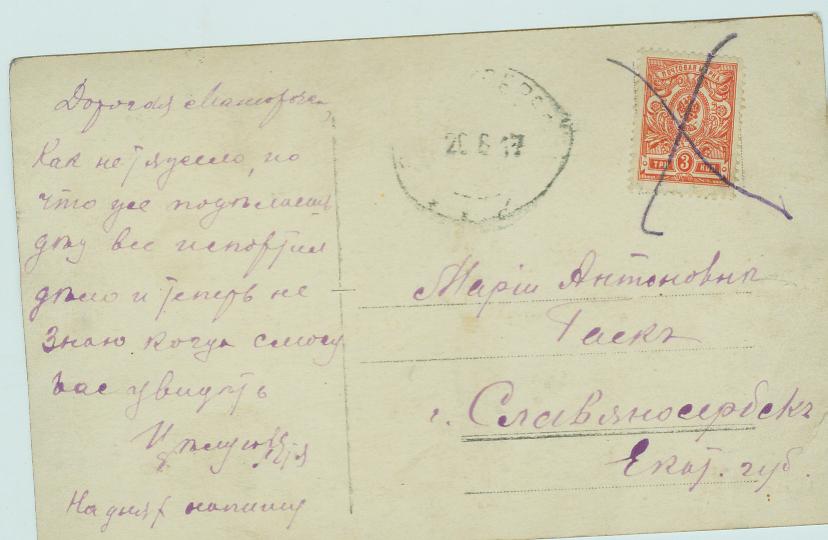 Дорогая Мамочка,
Как не тяжело, но
что уже подѣлаешь
дядя все испортил
дѣло и теперь не
знаю когда смогу
вас увидѣть
Цѣлую
На днях напишу
20 6 17
ПОЧТОВАЯ МАРКА
ТРИ 3 КОП
Маріи Антоновнѣ
Гаскъ
г. Славяносербскъ
Екат. губ.